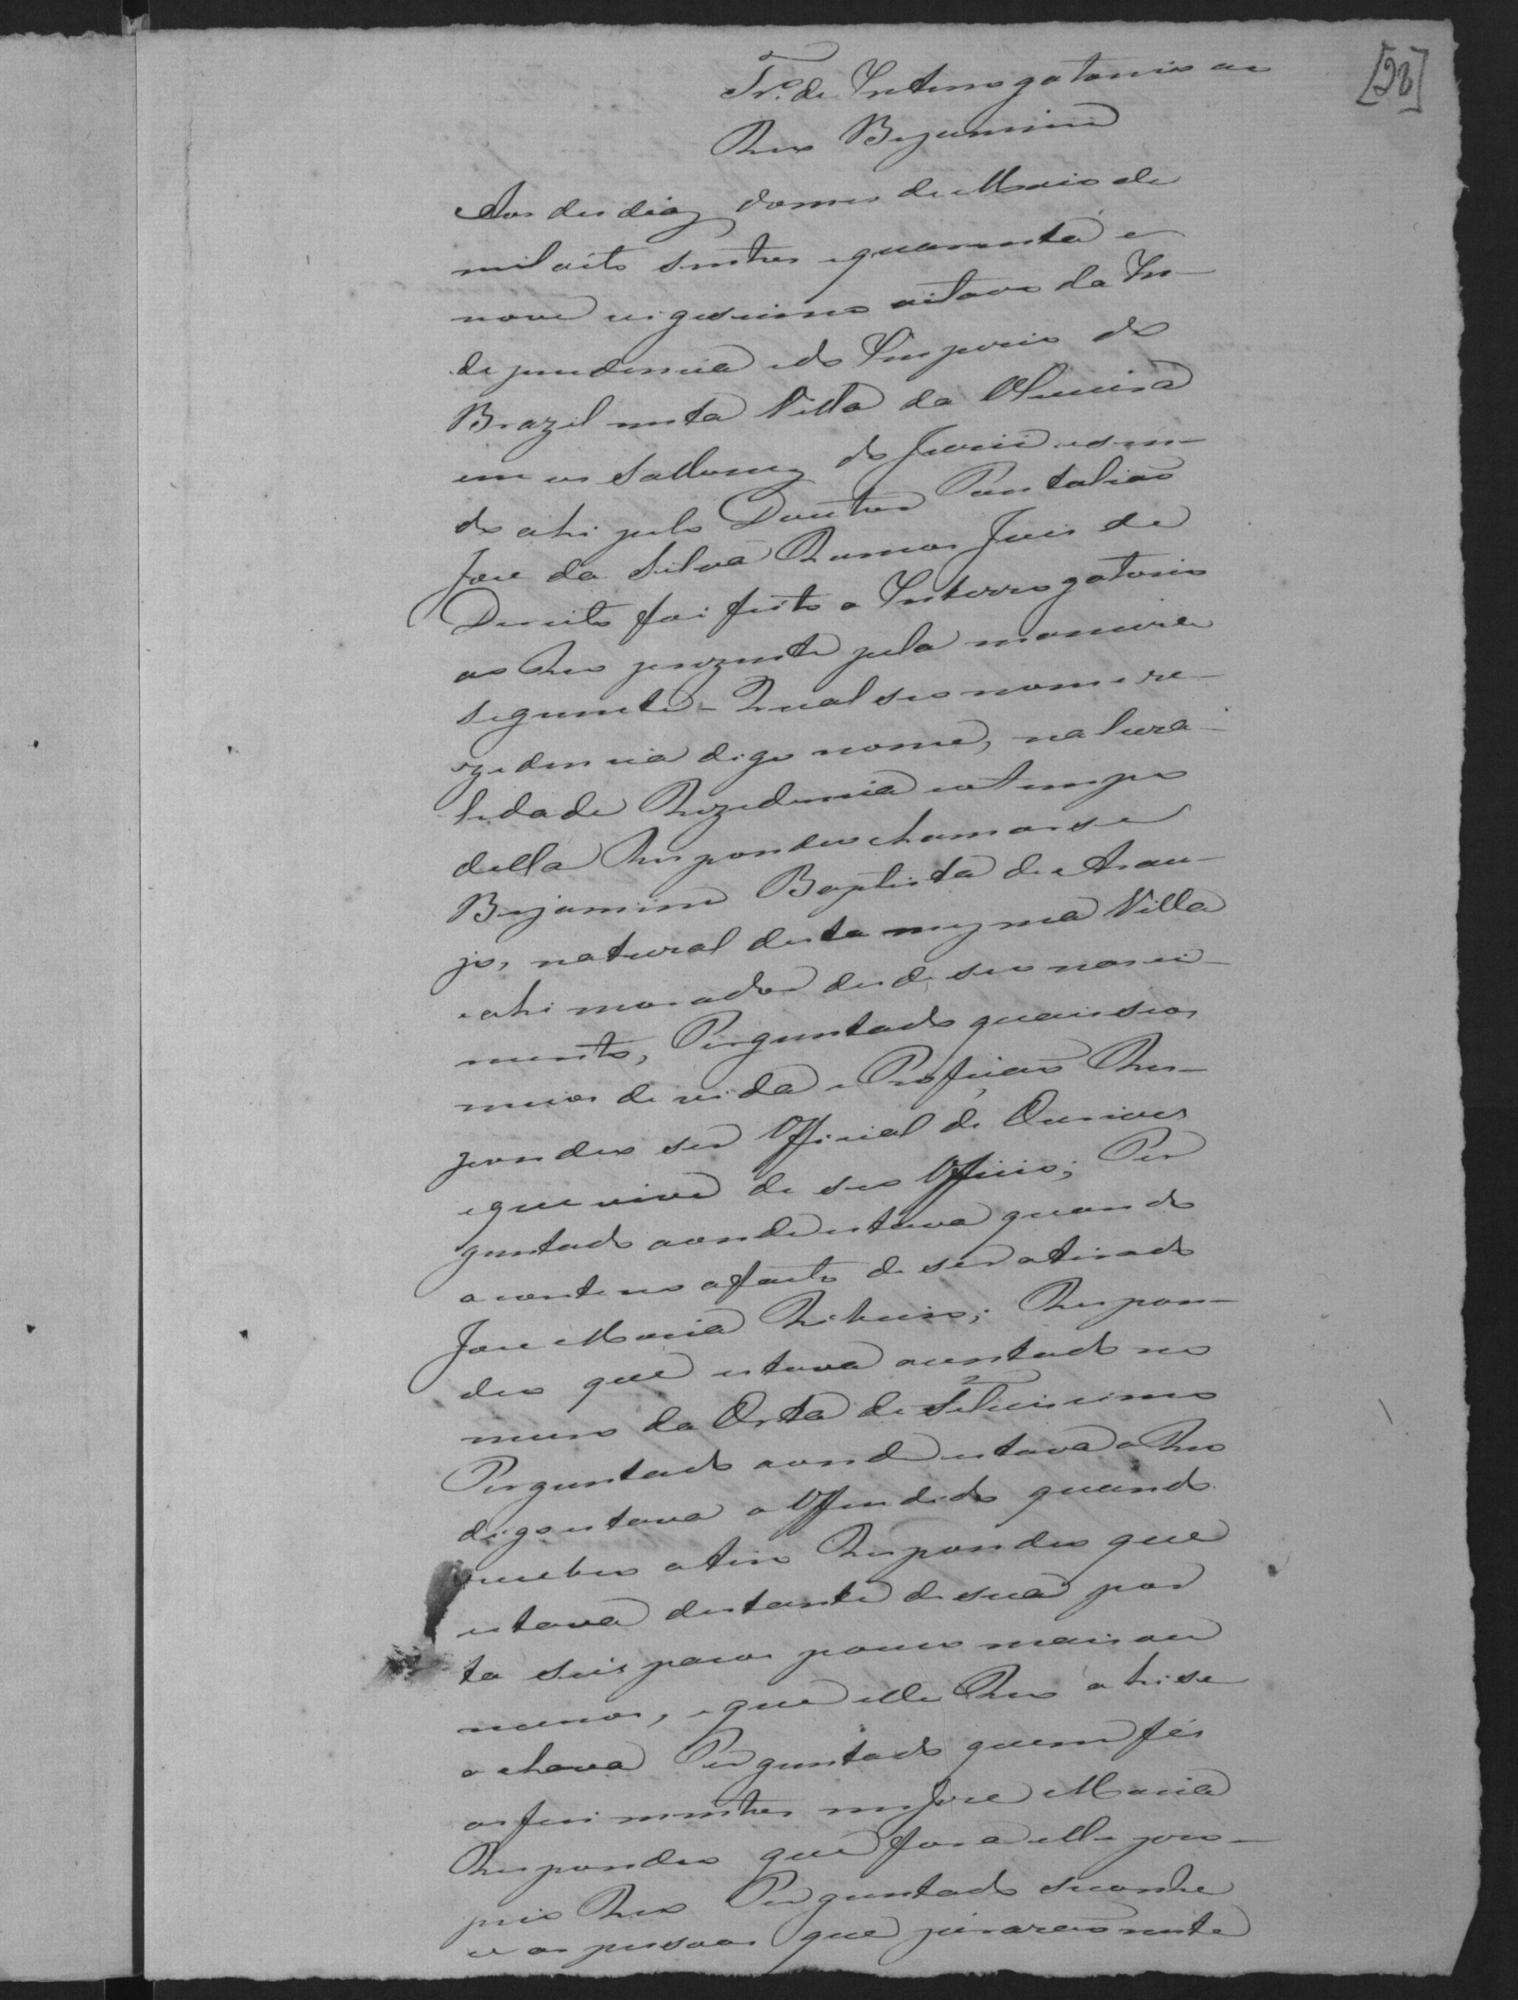 [28]
Tr.º de Interrogatorio ao
Reo Bejamim
Aos des dias do mes de Maio de
mil oito sentos e quarenta e
nove vigesimo oitavo da In-
dependencia e do Imperio do
Brazil nesta Villa da Oliveira
em os Salloens do Jurii e sen-
do ahi pelo Doutor Pantalião
Jose da Silva Ramos Juis de
Dereito foi feito o Interrogatorio
ao Reo prezente pela maneira
seguinte - Qual seo nome re-
zedencia digo nome, natura-
lidade Rezedencia e o tempo
della Respondeo chamar se
Bejamim Baptista de Arau-
jo, natural desta mesma Villa
e ahi morador desde seo nasci-
mento, Perguntado quais seos
meios de vida e Profição Res-
pondeo ser Official de Ourives
e que vive de seo Officio; Per
guntado aonde estava quando
aconteceo o facto de ser atirado
Jose Maria Ribeiro; Respon-
deo que estava acentado no
muro da Orta de Felicissimo
Perguntado aonde estava o Reo
digo estava o Offendido quando
recebeo o tiro Respondeo que
estava destante de sua por
ta seis paços pouco mais ou
menos, e que elle Reo ahi se
achava Perguntado quem fes
os ferimentos em Jose Maria
Respondeo que fora elle pro-
prio Reo Perguntado se conhe
ce as pessoas que jurarão neste